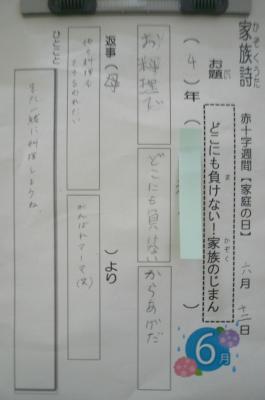 家族詩 赤十字週間【家庭の日】 六月 十二日
かぞくうた
お題 どこにも負けない!家族のじまん
だい ま かぞく
6月
( 4 )年 ( )
お料理で
どこにも負けない
からあげだ
返事( 母 )より
他の料理も
がんばれマーマ(笑)
ひとこと
また一緒に料理しようね